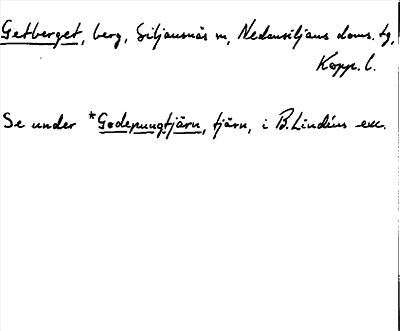 Getberget, berg, Siljansnäs sn, Nedansiljans doms. tg,
Kopp. l.
Se under *Gedepungtjärn, tjärn, i B. Lindéns exc.